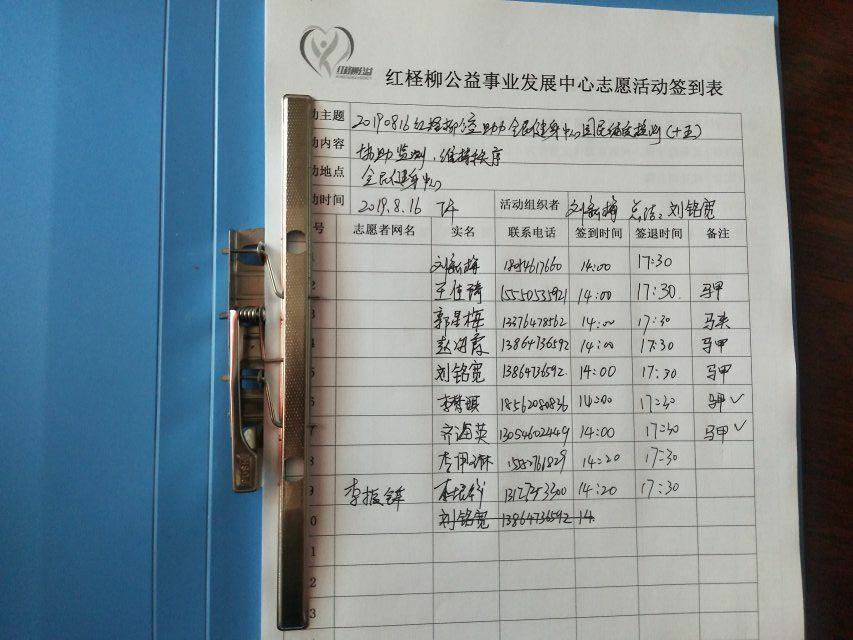 红柽柳公益
红柽柳公益事业发展中心志愿活动签到表
动主题 20190816红柽柳公益助力全民健身中心国民体质监测(十五)
动内容 协助监测、维持秩序
动地点 全民健身中心
动时间 2019.8.16 下午 活动组织者 刘铭宽
号 志愿者网名 实名 联系电话 签到时间 签退时间 备注
14:00 17:30
2 15550535921 14:00 17:30 马甲
3 郭星梅 13376478562 14:00 17:30 马夹
4 13864736592 14:00 17:30 马甲
5 刘铭宽 13864736592 14:00 17:30 马甲
6 18562080836 14:00 17:30 马甲✓
7 齐海英 13054602449 14:00 17:30 马甲✓
8 14:20 17:30
9 14:20 17:30
0 刘铭宽 13864736592 14
1
2
3